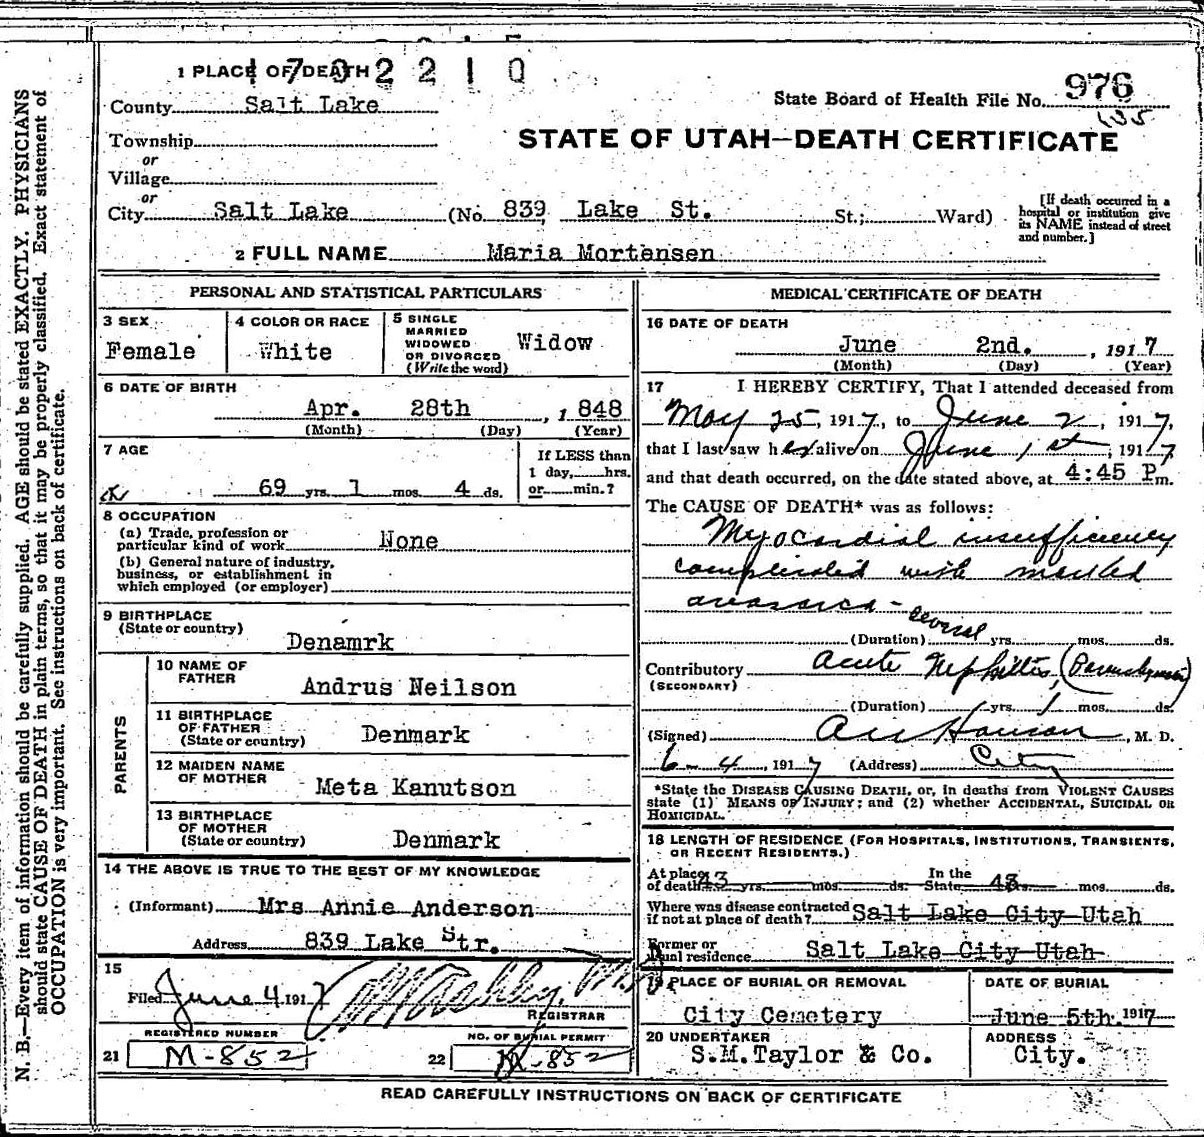 1 PLACE OF DEATH
1 7 0 2 2 1 0
County Salt Lake
State Board of Health File No. 976
Township
or
Village
or
STATE OF UTAH—DEATH CERTIFICATE
City Salt Lake (No. 839 Lake St. St.; Ward)
[If death occurred in a
hospital or institution give
its NAME instead of street
and number.]
2 FULL NAME Maria Mortensen
PERSONAL AND STATISTICAL PARTICULARS
3 SEX
Female
4 COLOR OR RACE
White
5 SINGLE
MARRIED
WIDOWED
OR DIVORCED
(Write the word)
Widow
6 DATE OF BIRTH
Apr. 28th, 1848
(Month) (Day) (Year)
7 AGE
69 yrs. 1 mos. 4 ds.
If LESS than
1 day, hrs.
or min.?
8 OCCUPATION
(a) Trade, profession or
particular kind of work None
(b) General nature of industry,
business, or establishment in
which employed (or employer)
9 BIRTHPLACE
(State or country)
Denamrk
PARENTS
10 NAME OF
FATHER
Andrus Neilson
11 BIRTHPLACE
OF FATHER
(State or country) Denmark
12 MAIDEN NAME
OF MOTHER Meta Kanutson
13 BIRTHPLACE
OF MOTHER
(State or country) Denmark
14 THE ABOVE IS TRUE TO THE BEST OF MY KNOWLEDGE
(Informant) Mrs Annie Anderson
Address 839 Lake Str.
15
Filed June 4 1917
REGISTRAR
REGISTERED NUMBER
21 M-852
NO. OF BURIAL PERMIT
22 M-852
MEDICAL CERTIFICATE OF DEATH
16 DATE OF DEATH
June 2nd. , 1917
(Month) (Day) (Year)
17 I HEREBY CERTIFY, That I attended deceased from
May 25, 1917, to June 2, 1917,
that I last saw her alive on June 1st, 1917
and that death occurred, on the date stated above, at 4:45 P m.
The CAUSE OF DEATH* was as follows:
Myocardial insufficiency
complicated with marked
anasarca - several
(Duration) yrs. mos. ds.
Contributory Acute Nephritis,
(SECONDARY)
(Duration) yrs. 1 mos. ds.
(Signed) Hanson, M. D.
6-4, 1917 (Address) City
*State the DISEASE CAUSING DEATH, or, in deaths from VIOLENT CAUSES
state (1) MEANS OF INJURY; and (2) whether ACCIDENTAL, SUICIDAL OR
HOMICIDAL.
18 LENGTH OF RESIDENCE (FOR HOSPITALS, INSTITUTIONS, TRANSIENTS,
OR RECENT RESIDENTS.)
At place In the
of death 43 yrs. mos. ds. State 43 mos. ds.
Where was disease contracted
if not at place of death? Salt Lake City Utah
Former or
usual residence Salt Lake City Utah
19 PLACE OF BURIAL OR REMOVAL
City Cemetery
DATE OF BURIAL
June 5th. 1917
20 UNDERTAKER
S.M.Taylor & Co.
ADDRESS
City.
READ CAREFULLY INSTRUCTIONS ON BACK OF CERTIFICATE
N. B.—Every item of information should be carefully supplied. AGE should be stated EXACTLY. PHYSICIANS
should state CAUSE OF DEATH in plain terms, so that it may be properly classified. Exact statement of
OCCUPATION is very important. See instructions on back of certificate.